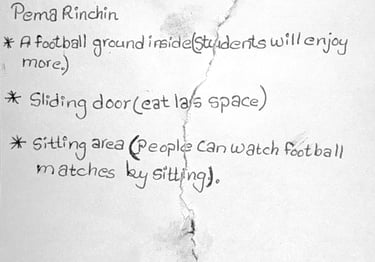 Pema Rinchin
* A football ground inside(students will enjoy
more.)
* Sliding door(eat la's space)
* Sitting area (People can watch football
matches by sitting).